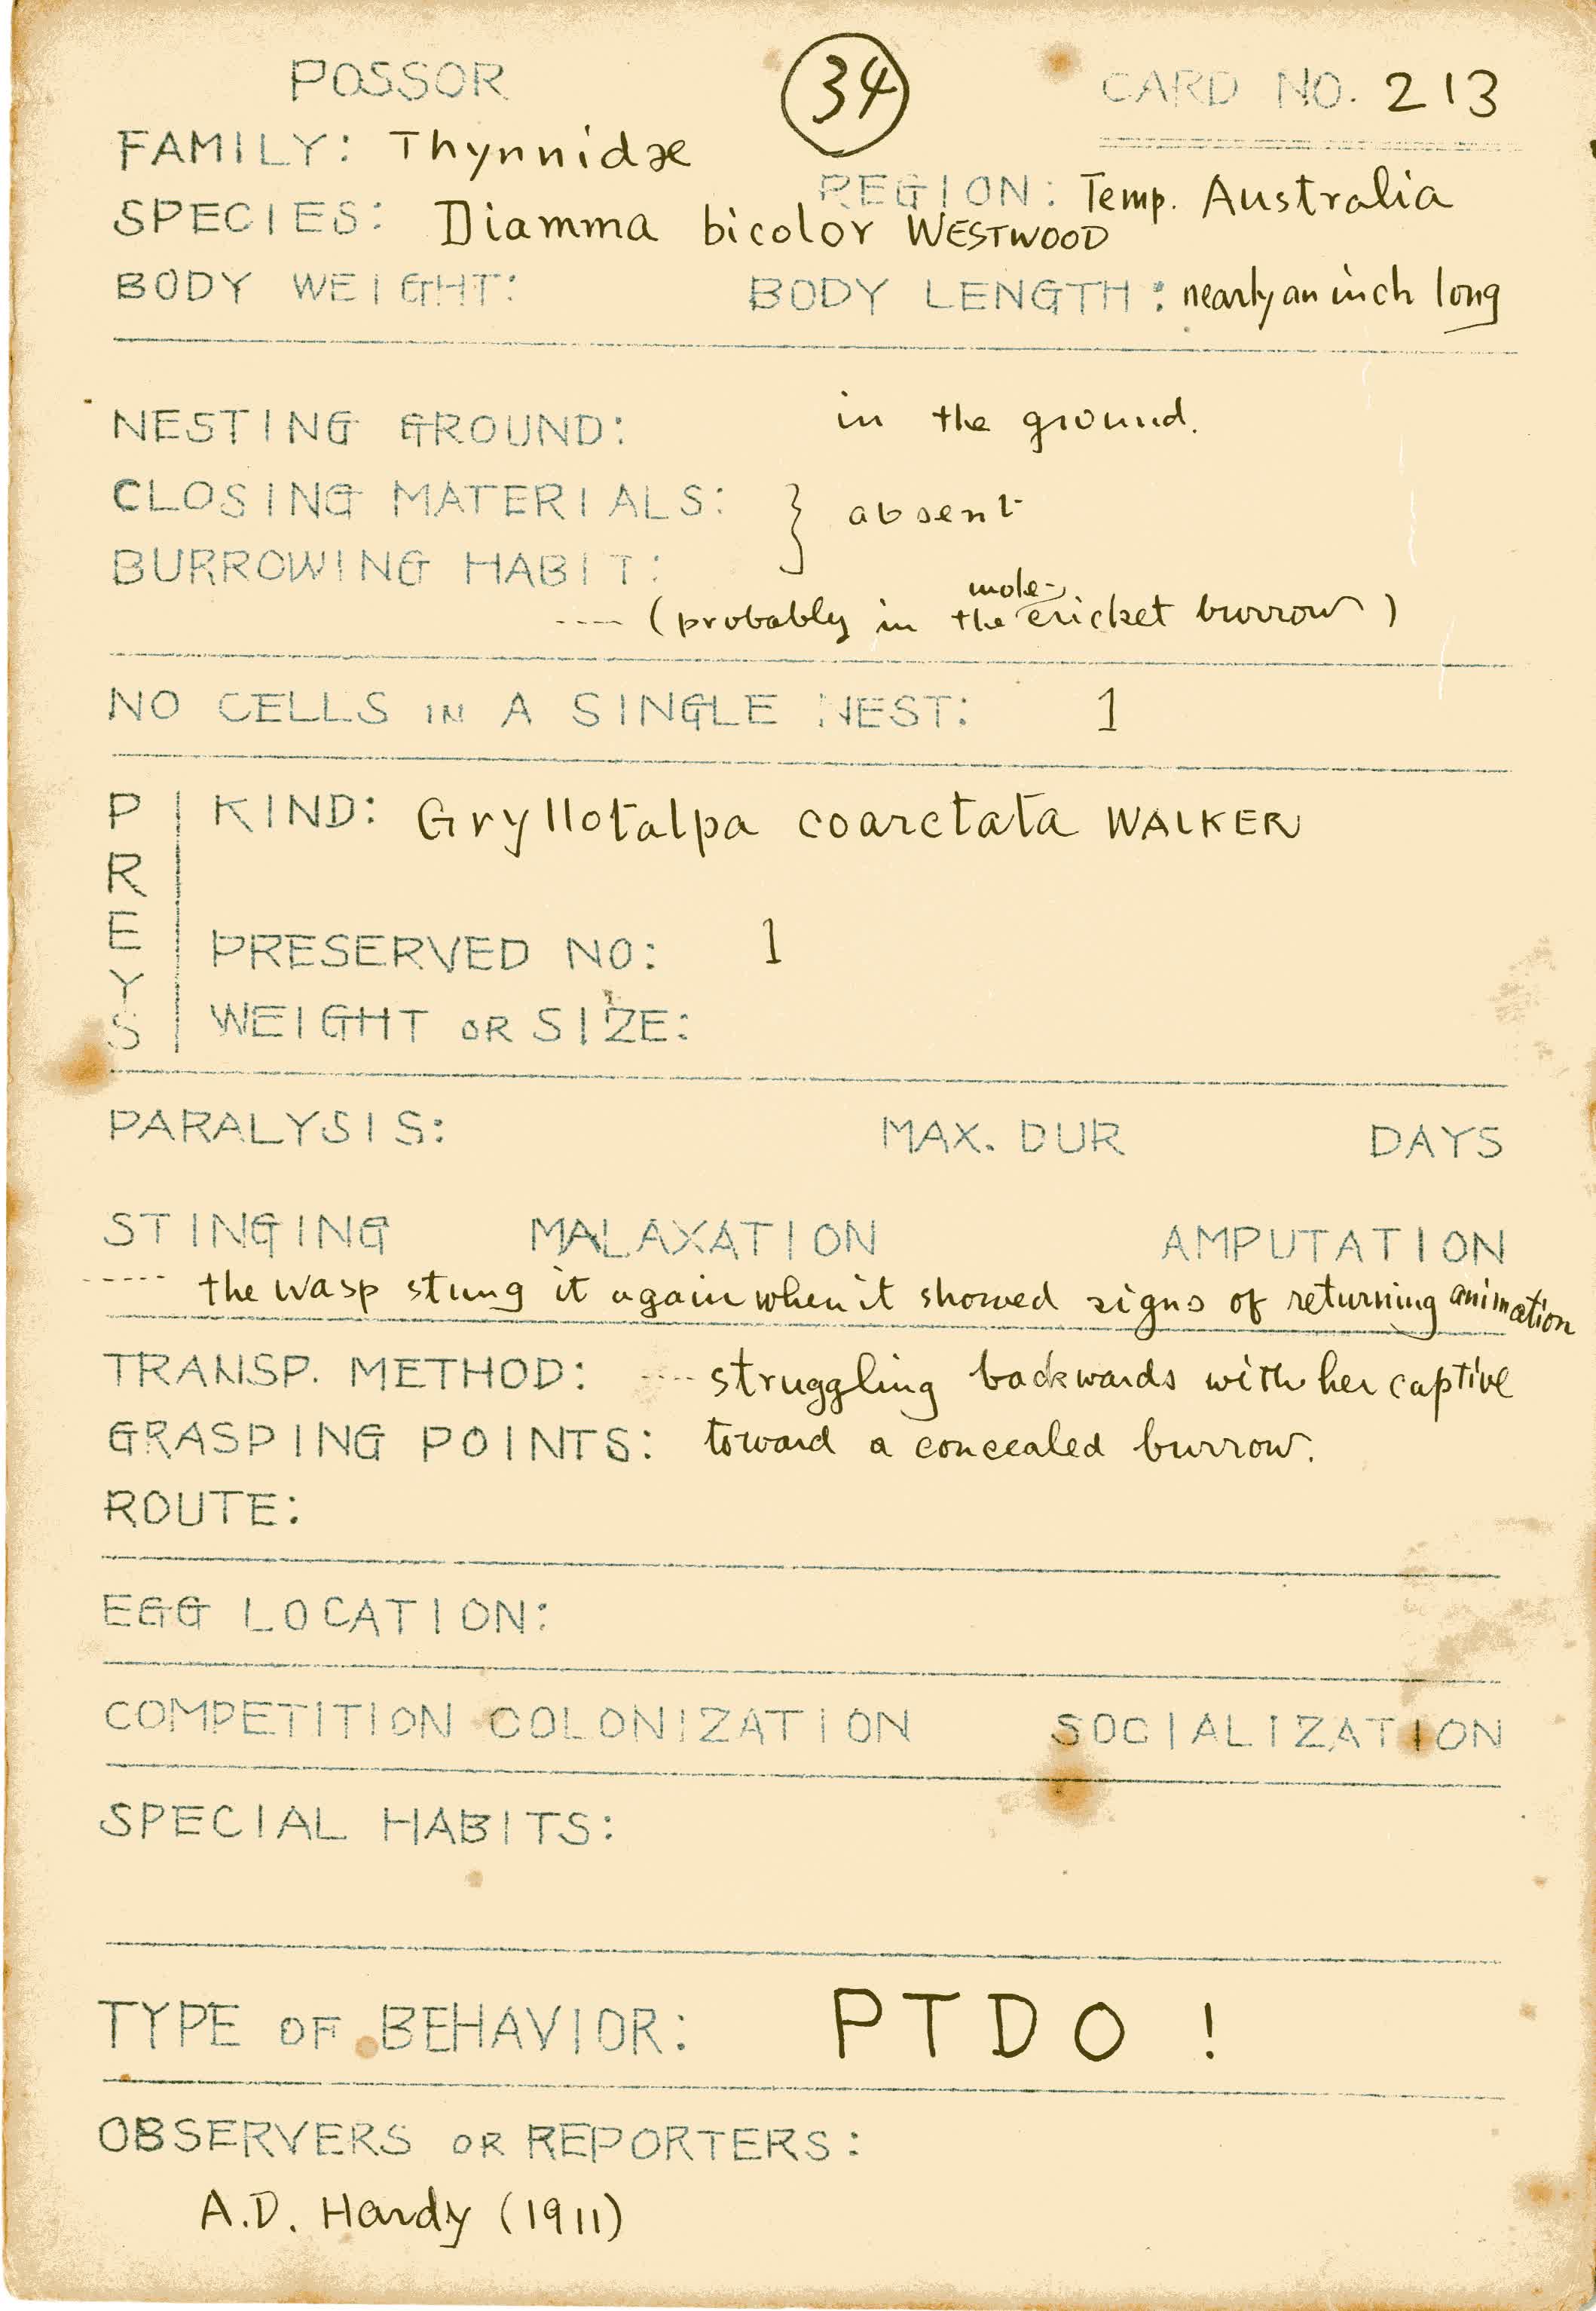 POSSOR
34
CARD NO. 213
FAMILY: Thynnidæ
REGION: Temp. Australia
SPECIES: Diamma bicolor WESTWOOD
BODY WEIGHT: BODY LENGTH: nearly an inch long
NESTING GROUND: in the ground.
CLOSING MATERIALS: } absent
BURROWING HABIT:
---- (probably in the mole-cricket burrow)
NO CELLS IN A SINGLE NEST: 1
PREYS
KIND: Gryllotalpa coarctata WALKER
PRESERVED NO: 1
WEIGHT OR SIZE:
PARALYSIS: MAX. DUR DAYS
STINGING MALAXATION AMPUTATION
----- the wasp stung it again when it showed signs of returning animation
TRANSP. METHOD: ---- struggling backwards with her captive
GRASPING POINTS: toward a concealed burrow.
ROUTE:
EGG LOCATION:
COMPETITION COLONIZATION SOCIALIZATION
SPECIAL HABITS:
TYPE OF BEHAVIOR: PTDO !
OBSERVERS OR REPORTERS:
A.D. Hardy (1911)